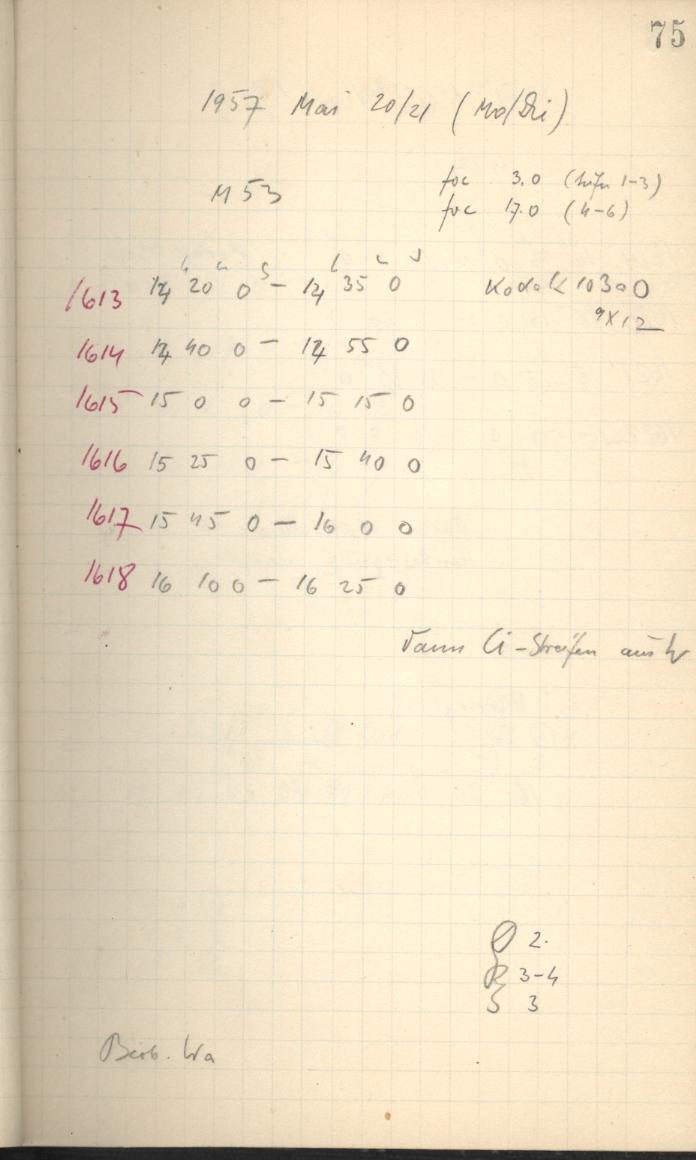 75
1957 Mai 20/21 (Mo/Di)
M 53
foc 3.0 (1-3)
foc 17.0 (4-6)
h m s h m s
1613 14 20 0 - 14 35 0 Kodak 103aO
9x12
1614 14 40 0 - 14 55 0
1615 15 0 0 - 15 15 0
1616 15 25 0 - 15 40 0
1617 15 45 0 - 16 0 0
1618 16 10 0 - 16 25 0
Dann Ci-Streifen aus W
2.
R 3-4
S 3
Beob. Wa